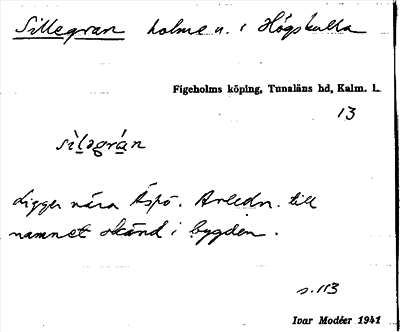 Sillegran holme n. i Högskulla
Figeholms köping, Tunaläns hd, Kalm. l.
13
sìl̲əgrán
Ligger nära Äspö. Anledn. till
namnet okänd i bygden.
s. 113
Ivar Modéer 1941